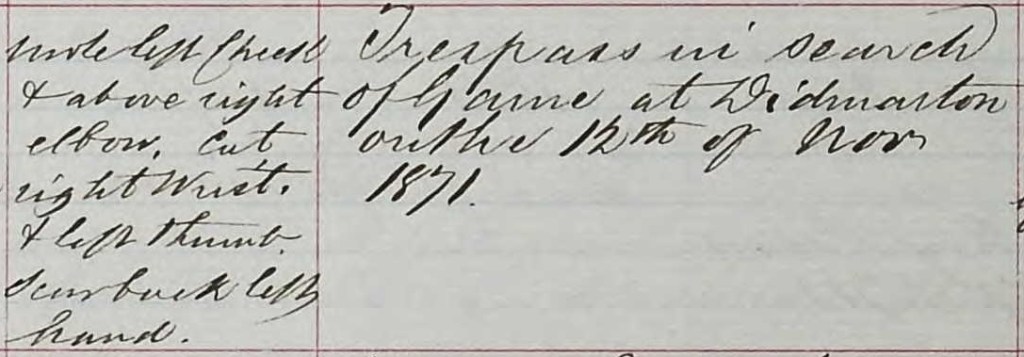 Mole left Cheek
& above right
elbow, Cut
right Wrist.
& left thumb.
Scar back left
hand.
Trespass in search
of Game at Didmarton
on the 12th of Novr
1871.